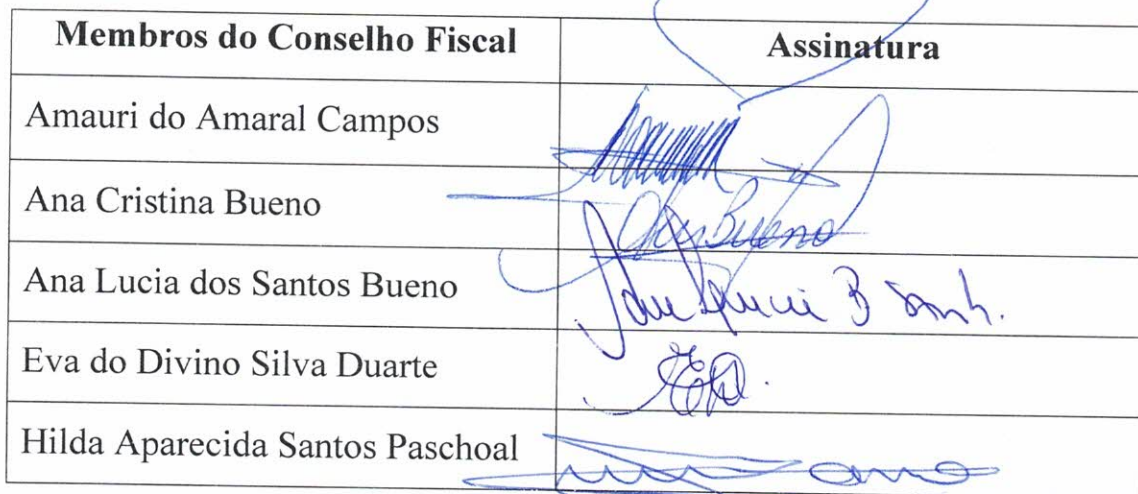 Membros do Conselho Fiscal Assinatura
Amauri do Amaral Campos
Ana Cristina Bueno Bueno
Ana Lucia dos Santos Bueno
Eva do Divino Silva Duarte
Hilda Aparecida Santos Paschoal